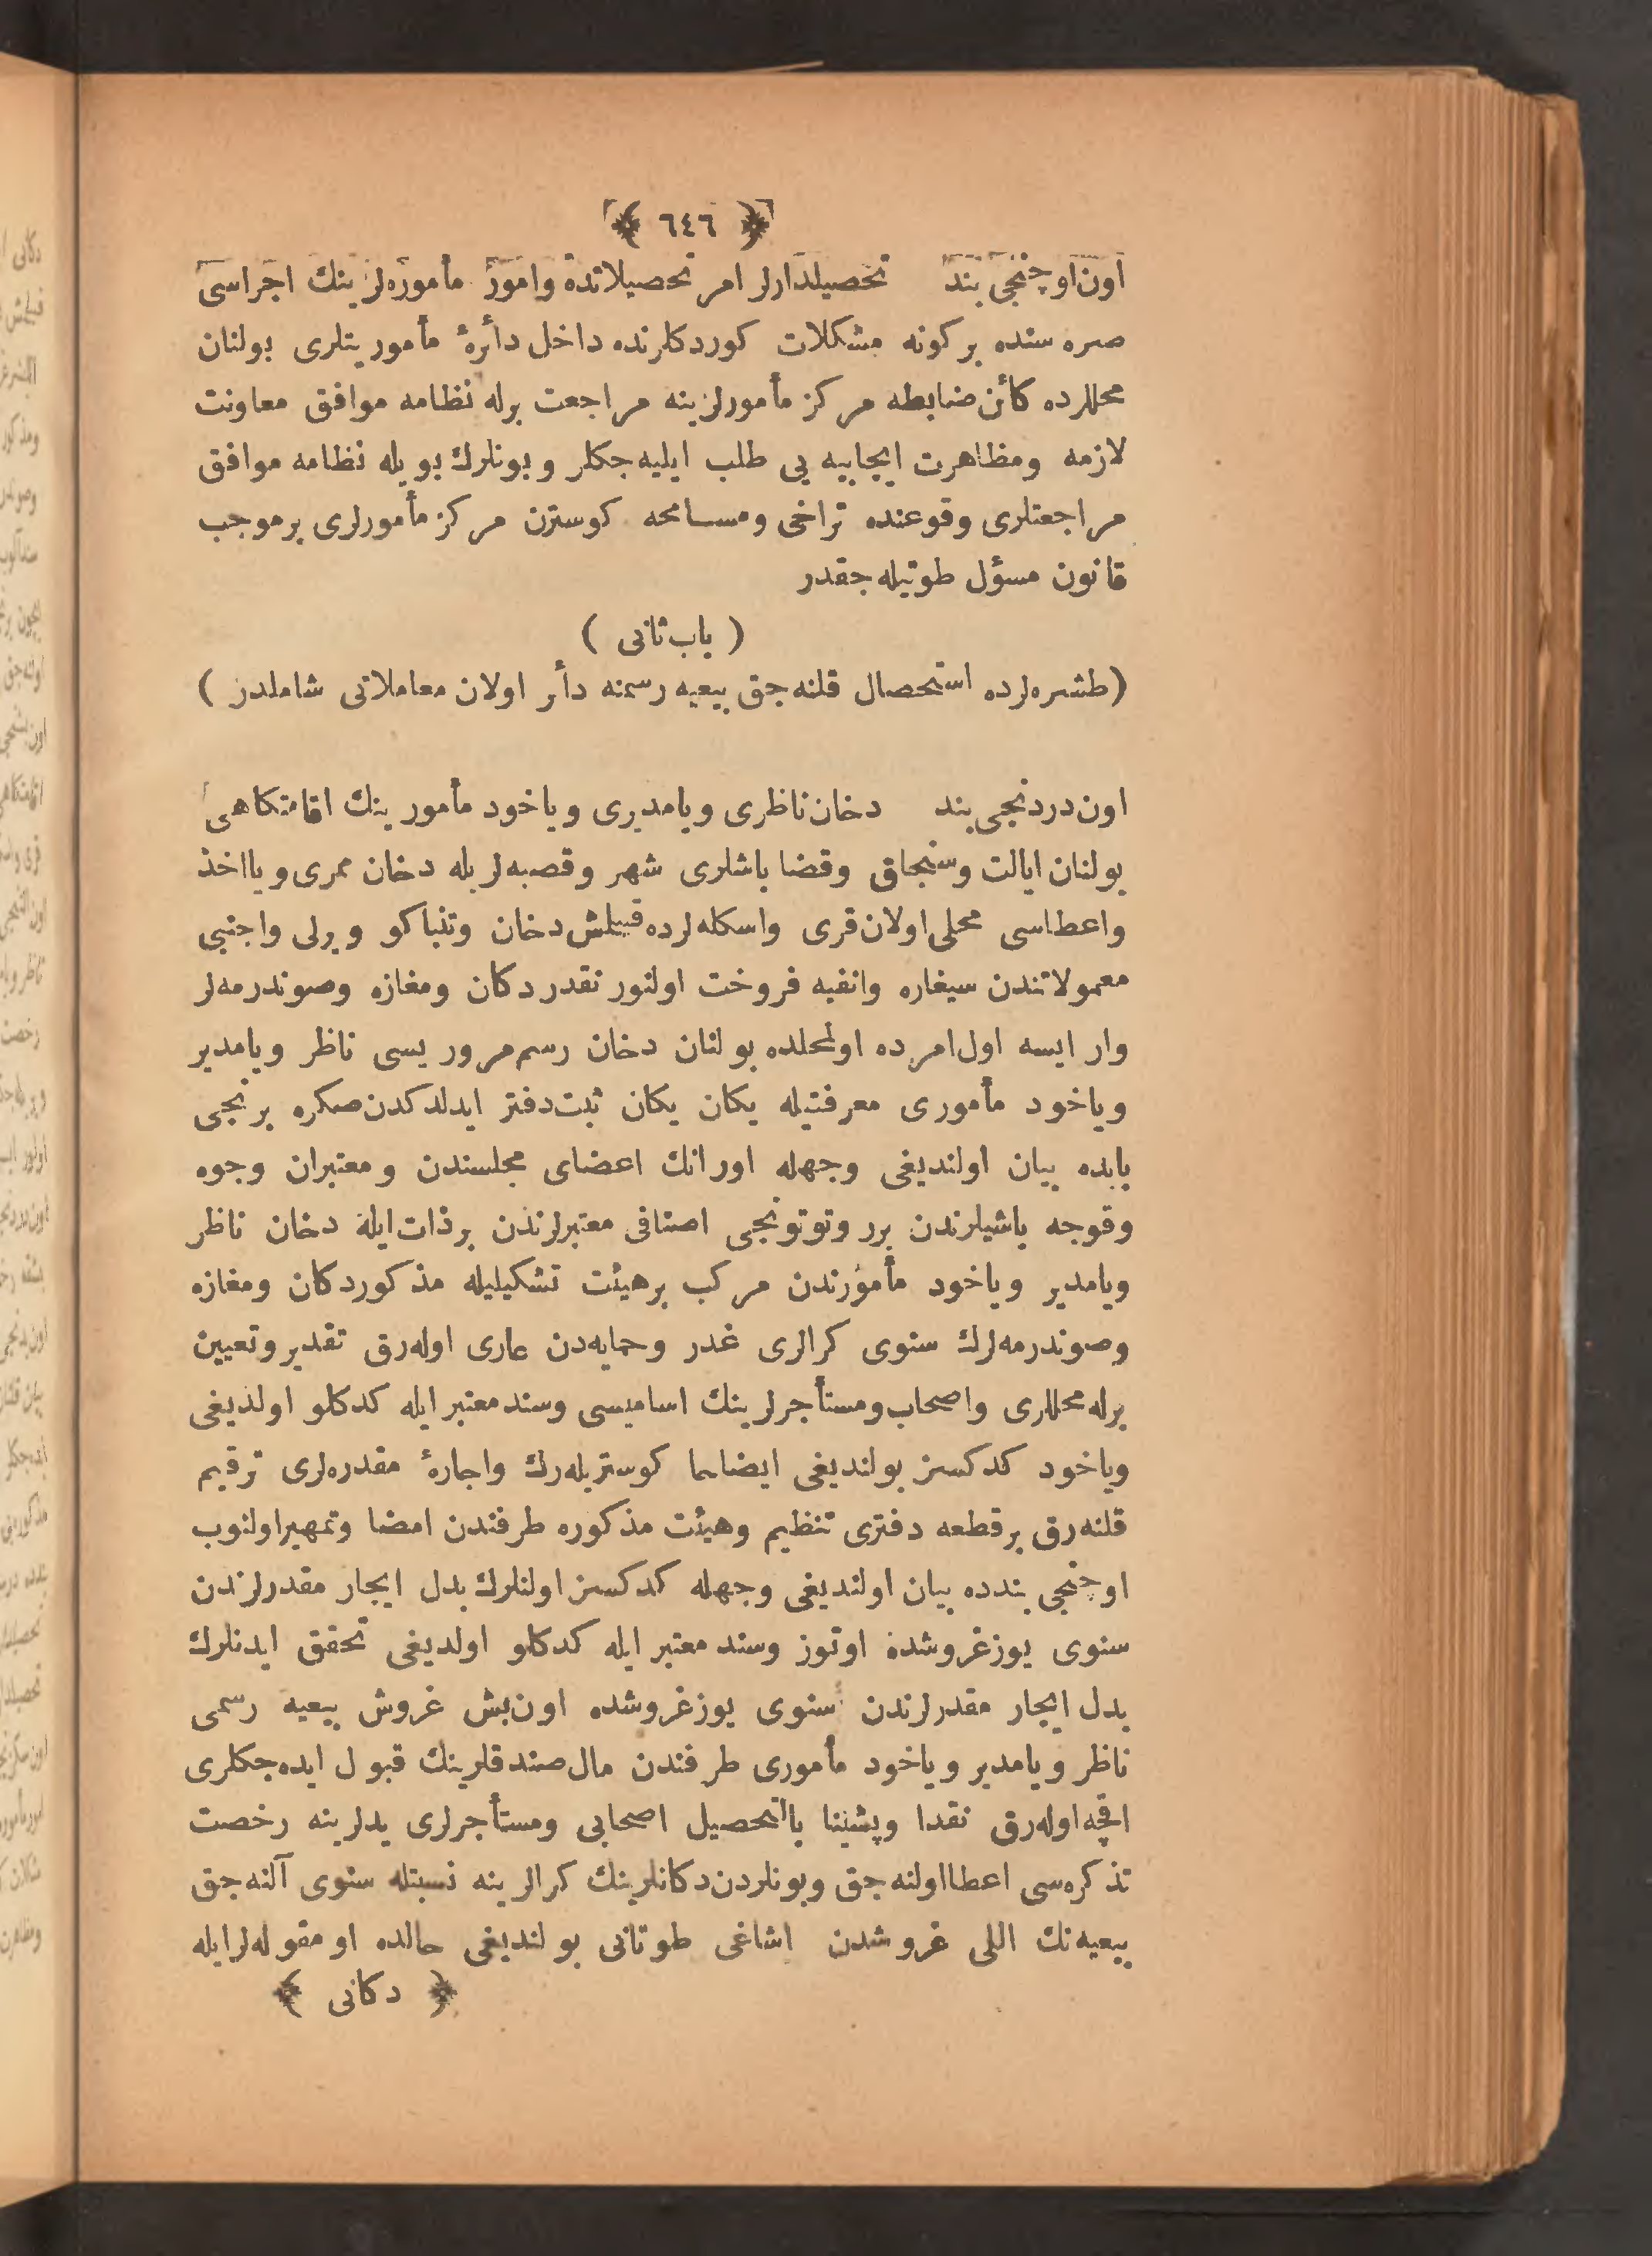 ﴿ ٦٤٦ ﴾
اون اوچنجی بند تحصیلدارلر امر تحصیلاتده وامور مأموره لرینك اجراسی
صره سنده بركونه مشكلات كوردكلرنده داخل دائرۀ مأموریتلری بولنان
محللرده كائن ضابطه مركز مأمورلرینه مراجعت برله نظامه موافق معاونت
لازمه ومظاهرت ایجابیه یی طلب ایلیه جكلر وبونلرك بویله نظامه موافق
مراجعتلری وقوعنده تراخی ومسامحه كوسترن مركز مأمورلری برموجب
قانون مسؤل طوتیله جقدر
( باب ثانی )
(طشره لرده استحصال قلنه جق بیعیه رسمنه دأر اولان معاملاتی شاملدر )
اون دردنجی بند دخان ناظری ویامدیری ویاخود مأمورینك اقامتكاهی
بولنان ایالت وسنجاق وقضا باشلری شهر وقصبه لریله دخان ممری ویااخذ
واعطاسی محلی اولان قری واسكله لرده قییلش دخان وتنباكو ویرلی واجنبی
معمولاتندن سیغاره وانفیه فروخت اولنور نقدر دكان ومغازه وصوندرمه لر
وار ایسه اول امرده اولمحلده بولنان دخان رسم مروریسی ناظر ویامدیر
ویاخود مأموری معرفتیله یكان یكان ثبت دفتر ایدلدكدن صكره برنجی
بابده بیان اولندیغی وجهله اورانك اعضای مجلسندن ومعتبران وجوه
وقوجه باشیلرندن برر وتوتونجی اصنافی معتبرلرندن برذات ایله دخان ناظر
ویامدیر ویاخود مأمورندن مركب برهیئت تشكیلیله مذكور دكان ومغازه
وصوندرمه لرك سنوی كرالری غدر وحمایه دن عاری اوله رق تقدیر وتعیین
برله محللری واصحاب ومستأجرلرینك اسامیسی وسند معتبر ایله كدكلو اولدیغی
ویاخود كدكسز بولندیغی ایضاحا كوستریله رك واجارۀ مقدره لری ترقیم
قلنه رق برقطعه دفتری تنظیم وهیئت مذكوره طرفندن امضا وتمهیر اولنوب
اوچنجی بندده بیان اولندیغی وجهله كدكسز اولنلرك بدل ایجار مقدرلرندن
سنوی یوزغروشده اوتوز وسند معتبر ایله كدكلو اولدیغی تحقق ایدنلرك
بدل ایجار مقدرلرندن سنوی یوزغروشده اون بش غروش بیعیه رسمی
ناظر ویامدیر ویاخود مأموری طرفندن مال صندقلرینك قبول ایده جكلری
اقچه اوله رق نقدا وپشینا باالتحصیل اصحابی ومستأجرلری یدلرینه رخصت
تذكره سی اعطااولنه جق وبونلردن دكانلرینك كرالرینه نسبتله سنوی آلنه جق
بیعیه نك اللی غروشدن اشاغی طوتانی بولندیغی حالده اومقوله لرایله
﴿ دكانی ﴾